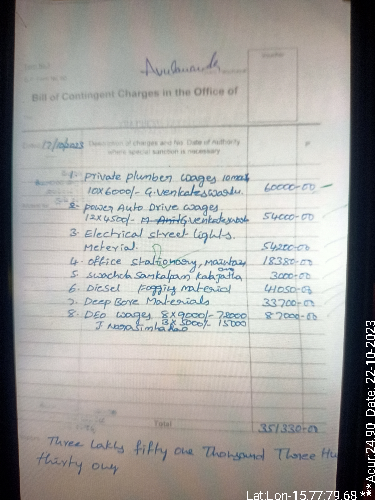 Bill of Contingent Charges in the Office of
12/10/2023 Description of charges and No. Date of authority
where special sanction is necessary
1. private plumber wages 10 months
10x6000/- G. Venkateswarlu. 60000-00
2. power Auto Drive wages
12x4500/- M. G Venkateswarlu 54000-00
3. Electrical street lights.
Meterial. 54200-00
4. office stationary, 18380-00
5. swachta Sankalpam 3000-00
6. Diesel Fogging material 41050-00
7. Deep Bore Materials 33700-00
8. DEO wages 8x9000/- 72000 87000-00
J Narasimharao 3x5000/- 15000
Total 351330-00
Three Lakhs fifty one Thousand Three Hu
thirty only
Lat:Lon-15.77:79.68 ***Acur:24.90 Date: 22-10-2023